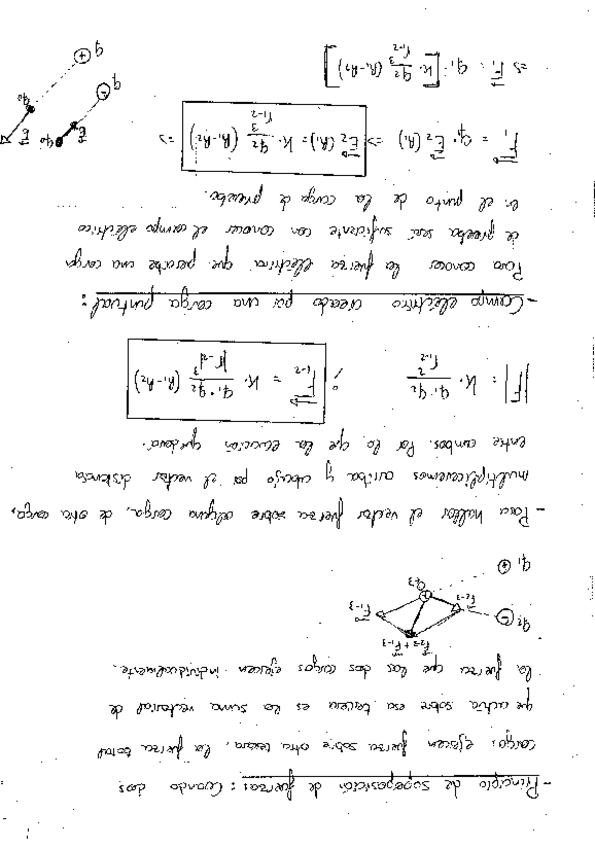 - Principio de superposición de fuerzas: Cuando dos
cargas ejercen fuerza sobre otra tercera, la fuerza total
que actúa sobre esa tercera es la suma vectorial de
la fuerza que las dos cargas ejercen individualmente.
F2-3 + F1-3
q2 F2-3 F1-3
q3
q1
- Para hallar el vector fuerza sobre alguna carga, de otra carga,
multiplicaremos arriba y abajo por el vector distancia
entre ambos. Por lo que la ecuación quedará:
|F| = K · q1·q2 / r1-2² ; F1-2 = K · q1·q2 / |r1-2|³ (R1-R2)
- Campo eléctrico creado por una carga puntual:
Para conocer la fuerza eléctrica que percibe una carga
de prueba será suficiente con conocer el campo eléctrico
en el punto de la carga de prueba.
F1 = q1 · E2 (R1) => E2 (R1) = K · q2 / r1-2³ (R1-R2) =>
=> F1 = q1 · [K · q2 / r1-2³ (R1-R2)]
q0 E q0 E
q
q